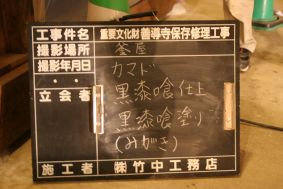 工事件名 重要文化財 善導寺保存修理工事
撮影場所 釜屋
撮影年月日
カマド
立会者 黒漆喰仕上
黒漆喰塗り
(みがき)
施工者 ㈱竹中工務店